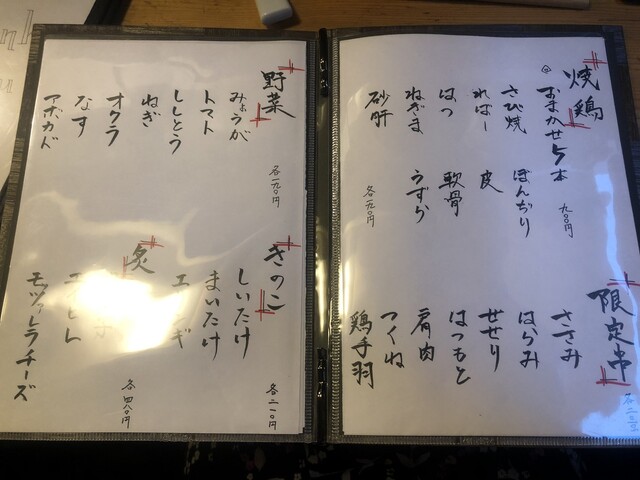 焼鶏
おまかせ5本
さび焼
ぼんぢり
ればー
皮
はつ
軟骨
ねぎま
うずら
砂肝
各一九〇円
限定串
ささみ
はらみ
せせり
はつもと
肩肉
つくね
鶏手羽
野菜
みょうが
トマト
ししとう
ねぎ
オクラ
なす
アボカド
各一九〇円
きのこ
しいたけ
まいたけ
エリンギ
各二一〇円
炙
エイヒレ
モッツァレラチーズ